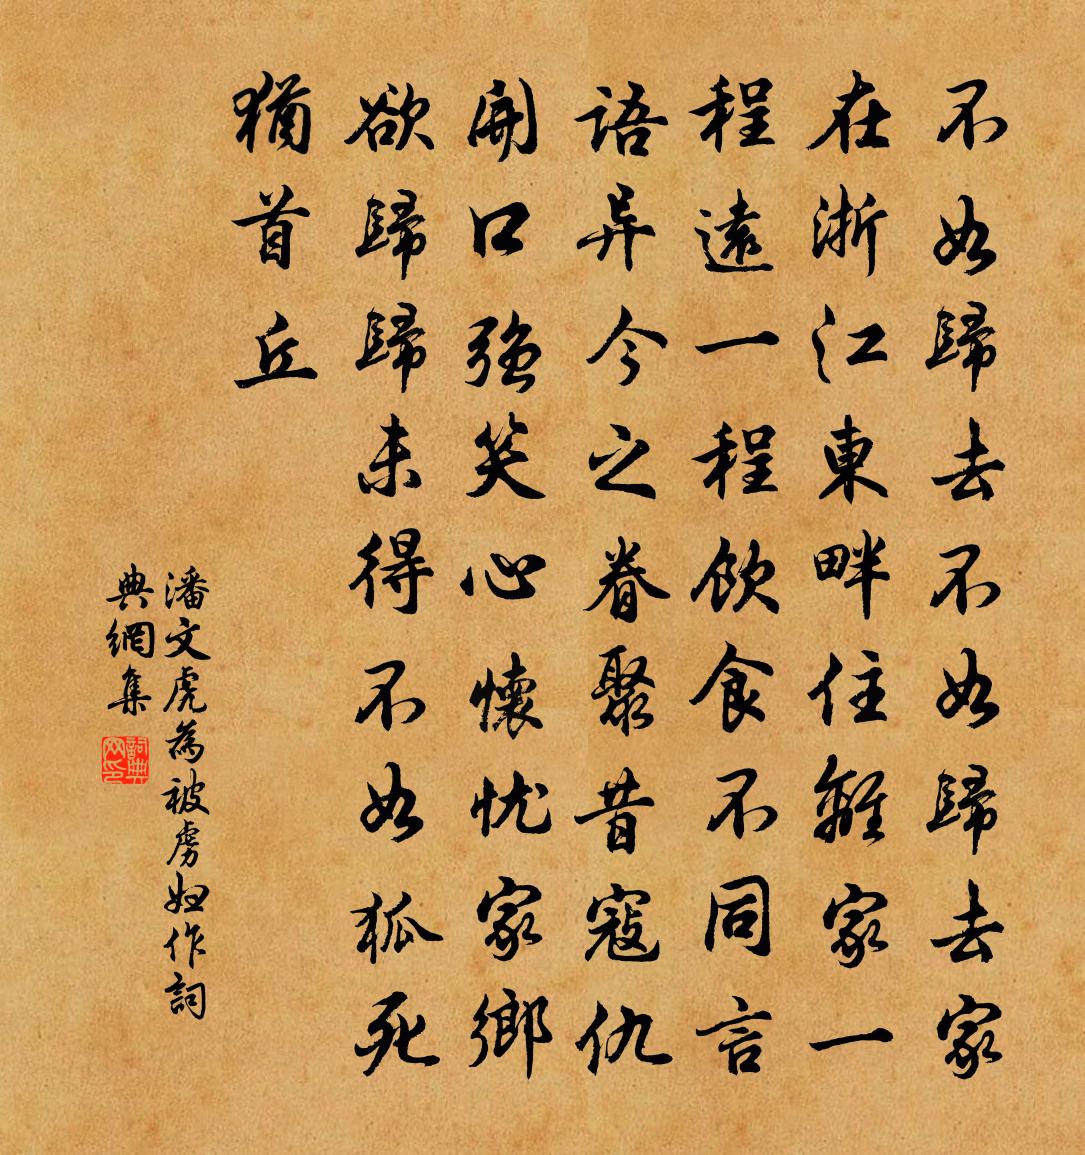 不如歸去不如歸去家
在浙江東畔住離家一
程遠一程飲食不同言
語异今之眷聚昔寇仇
開口強笑心懷忧家鄉
欲歸歸未得不如狐死
猶首丘
潘文虎為被虜婦作詞
典網集
詞典網印